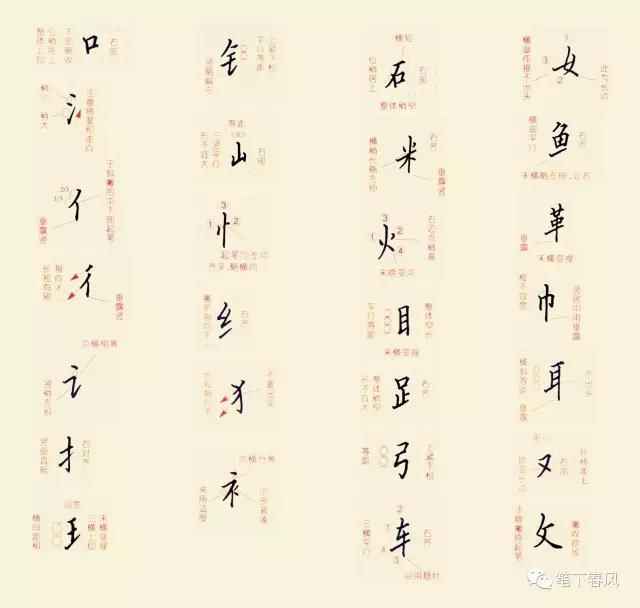 整体上仰
位稍居上
下部略收
口
右部
稍小
稍大
氵
注意角度和走向
2/3
1/3
亻
于斜撇的中下部起笔
垂露竖
长短有别
彳
垂露竖
点横相离
讠
竖稍左斜
竖画直挺
扌
右对齐
横间距相
王
三横上仰
末横变提
竖略偏左
钅
平行等距
上紧下松
等距
形不宜大
三竖平行
山
右部
3
1 2
忄
起笔与左点
齐平,略横向
纟
右齐
长短指向不一
犭
不要出头
点横分离
衤
夹角适度
中部紧凑
横短
位稍居上
石
右部
整体稍窄
横稍长略左伸
米
右齐
垂露竖
3
1 2
火
4
右边点稍高
末捺变点
平行等距
目
整体窄长
末横变提
形不宜大
整体稍窄
足
右齐
等距
弓
上紧下松
2
1
三横平行
车
右齐
4
3
宜用悬针
1
3
女
2
此为长点
横画平行
鱼
右齐
末横略左伸,让右
革
垂露竖
末横变提
框不宜宽
巾
竖居中用垂露
横斜等距
耳
不出头
垂露
形小
捺变长点
又
右部
位稍居上
攵
撇收捺放
笔下春风